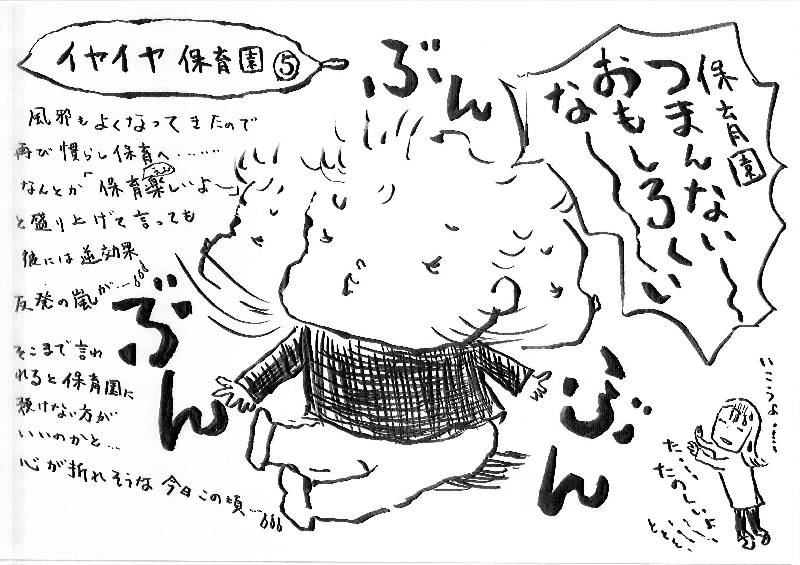 イヤイヤ保育園⑤
風邪もよくなってきたので
再び慣らし保育へ……
なんとか「保育園楽しいよ〜」
と盛り上げて言っても
彼には逆効果
反発の嵐が…
そこまで言わ
れると保育園に
預けない方が
いいのかと…
心が折れそうな今日この頃…
ぶん
ぶん
ぶん
保育園
つまんない〜〜
おもしろくい
な〜
いこうよ…
た、
たのしいよ
ととと